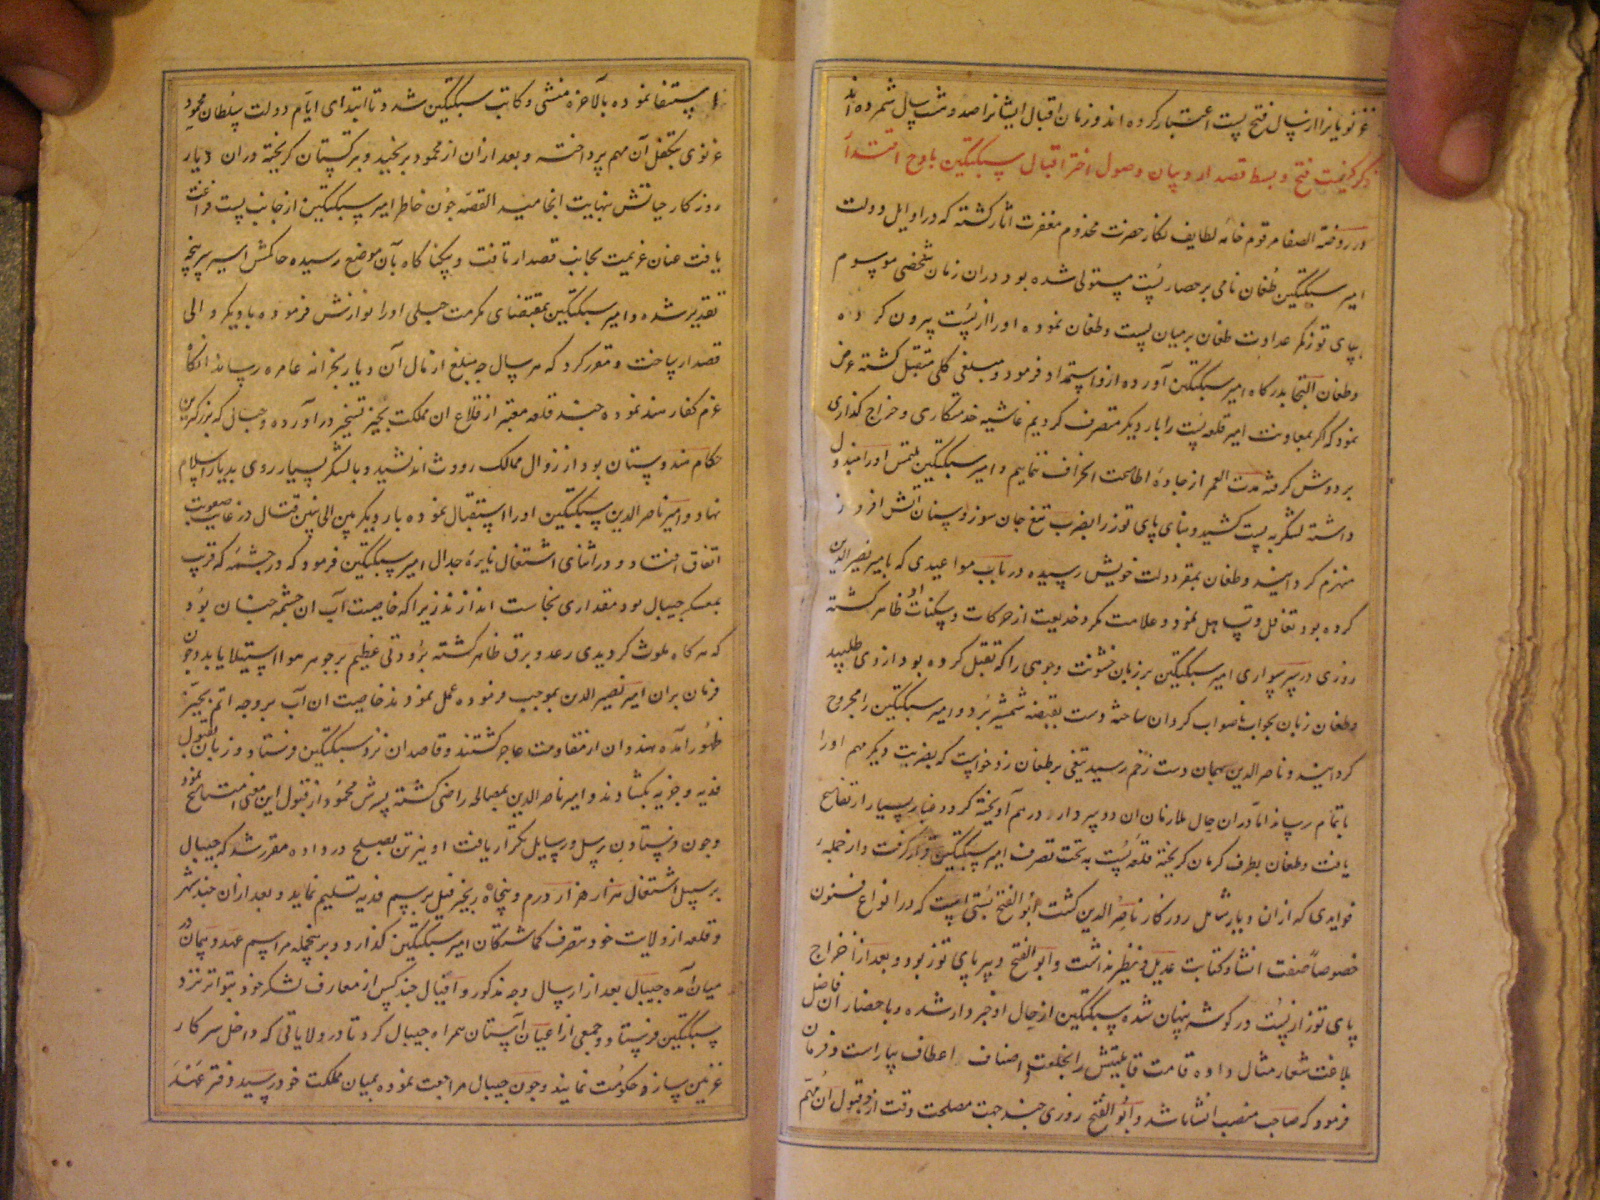 غزنویانرا از سال فتح بست اعتبار کرده اند و زمان اقبال ایشانرا صد و شت سال شمرده اند
ذکر کیفیت فتح و بسط قصدار و بیان وصول اختر اقبال سبکتکین باوج اقتدار
در روضة الصفا مرقوم خامه لطایف نکار حضرت مخدوم مغفرت اثار کشته که در اوایل دولت
امیر سبکتکین طغان نامی بر حصار بُست مستولی شده بود در ان زمان شخصی موسوم
بپای توز کمر عداوت طغان بر میان بست و طغان نموده او را از بُست بیرون کرده
و طغان التجا بدرکاه امیر سبکتکین آورده ازو استمداد فرمود و مبلغی کلی متقبل کشته عرض
نمود که اکر بمعاونت امیر قلعه بُست را بار دیکر متصرف کردیم غاشیه خدمتکاری و خراج کذاری
بر دوش کرفته مدت العمر از جادهٔ اطاعت انحراف ننمایم و امیر سبکتکین ملتمس او را مبذول
داشته لشکر به بست کشید و بنای پای توز را بضرب تیغ جان سوز و سنان آتش افروز
منهزم کردانید و طغان بمقر دولت خویش رسیده در باب مواعیدی که بامیر نصیر الدین
کرده بود تغافل و تساهل نمود و علامت مکر و خدیعت از حرکات و سکنات او ظاهر کشته
روزی در سر سواری امیر سبکتکین بر زبان خشونت وجوهی را که تقبل کرده بود ازوی طلبید
و طغان زبان بجواب ناصواب کردان ساخته دست بقبضه شمشیر بُرد و امیر سبکتکین را مجروح
کردانید و ناصر الدین بهمان دست زخم رسید تیغی بر طغان زد و خواست که بضربت دیکر مهم او را
باتمام رساند اما در ان حال ملازمان ان دو سردار درهم آویخته کرد و غبار بسیار ارتفاع
یافت و طغان بطرف کرمان کریخته قلعه بُست به تحت تصرف امیر سبکتکین قرار کرفت و از جمله
فوایدی که ازان دیار شامل روزکار ناصر الدین کشت ابو الفتح بُستی است که در انواع فنون
خصوصاً صنعت انشا و کتابت عدیل و نظیر نداشت و ابو الفتح دبیر پای توز بود و بعد از اخراج
پای توز از بُست در کوشه پنهان شده سبکتکین از حال او خبردار شده و باحضار ان فاضل
بلاغت شعار مثال داده قامت قابلیتش را بخلعت اصناف اعطاف بیاراست و فرمان
فرمود که صاحب منصب انشا باشد و ابو الفتح روزی چند جهت مصلحت وقت از قبول ان مهم
استعفا نموده بالاخره منشی و کاتب سبکتکین شد و تا ابتدای ایام دولت سلطان محمود
غزنوی بتکفل آن مهم پرداخت و بعد ازان از محمود برنجید و بترکستان کریخته در ان دیار
روزکار حیاتش بنهایت انجامید القصه چون خاطر امیر سبکتکین از جانب بست فراغت
یافت عنان عزیمت بجانب قصدار تافت و بیکناکاه بآن موضع رسیده حاکمش اسیر سرپنجه
تقدیر شد و امیر سبکتکین بمقتضای مکرمت جبلی او را نوازش فرموده بار دیکر والی
قصدار ساخت و مقرر کرد که هر سال چه مبلغ از مال آن دیار بخزانه عامره رساند انکاه
عزم کفار هند نموده چند قلعه معتبر از قلاع ان مملکت بحیز تسخیر در آورده و جیپال که بزرکترین
حکام هندوستان بود از زوال ممالک روث اندیشید و با لشکر بسیار روی بدیار اسلام
نهاد و امیر ناصر الدین سبکتکین او را استقبال نموده بار دیکر بین الجانبین قتال در غایت صعوبت
اتفاق افتاد و در اثنای اشتعال نایرهٔ جدال امیر سبکتکین فرمود که در چشمه که قریب
بمعسکر جیپال بود مقداری نجاست اندازند زیرا که خاصیت آب ان چشمه چنان بود
که هر کاه ملوث کردیدی رعد و برق ظاهر کشته برودتی عظیم بر جوهر هوا استیلا یابد و چون
فرمان بران امیر نصیر الدین بموجب فرموده عمل نمودند خاصیت ان آب بر وجه اتم بحیز
ظهور آمده هندوان از مقاومت عاجز کشتند و قاصدان نزد سبکتکین فرستاد و زبان بقبول
فدیه و جزیه بکشادند و امیر ناصر الدین بمصالحه راضی کشته پسرش محمود از قبول این معنی امتناع نمود
و چون فرستادن رسل و رسایل تکرار یافت او نیز تن بصلح در داده مقرر شد که جیپال
بر سبیل اشتعال هزار هزار درم و پنجاه زنجیر فیل برسم فدیه تسلیم نماید و بعد ازان چند شهر
و قلعه از ولایت خود متصرف کماشتکان امیر سبکتکین کذارد و برینجمله مراسم عهد و پیمان در
میان آمده جیپال بعد از ارسال وجه مذکور و افیال چند کس از معارف لشکر خود بنوا نزد
سبکتکین فرستاد و جمعی از اعیان آستان همراه جیپال کرد تا در ولایاتی که داخل سرکار
غزنین سازد حکومت نمایند و چون جیپال مراجعت نموده بمیان مملکت خود رسید دفتر عهد